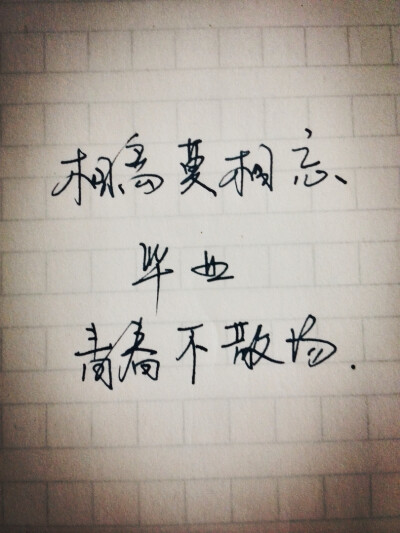 相离莫相忘、
毕业
青春不散场.